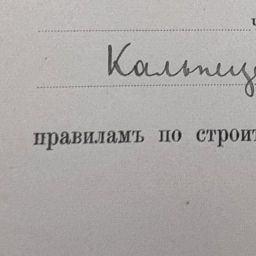 Кальпице
правиламъ по строит